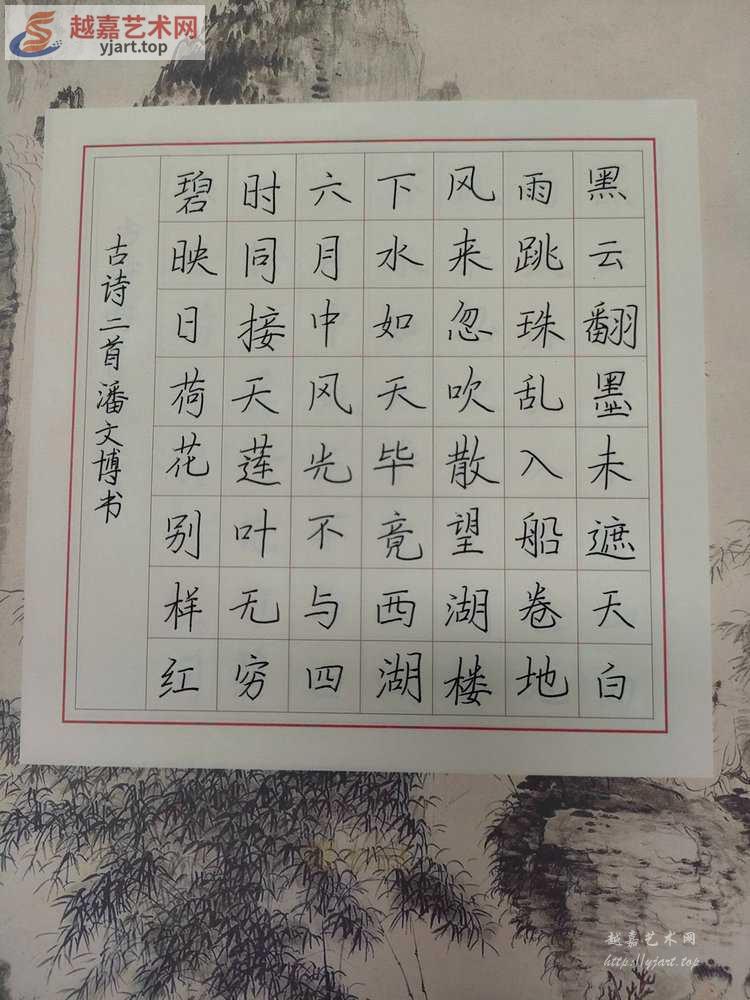 越嘉艺术网
yjart.top
黑云翻墨未遮天白
雨跳珠乱入船卷地
风来忽吹散望湖楼
下水如天毕竟西湖
六月中风光不与四
时同接天莲叶无穷
碧映日荷花别样红
古诗二首潘文博书
越嘉艺术网
http://yjart.top